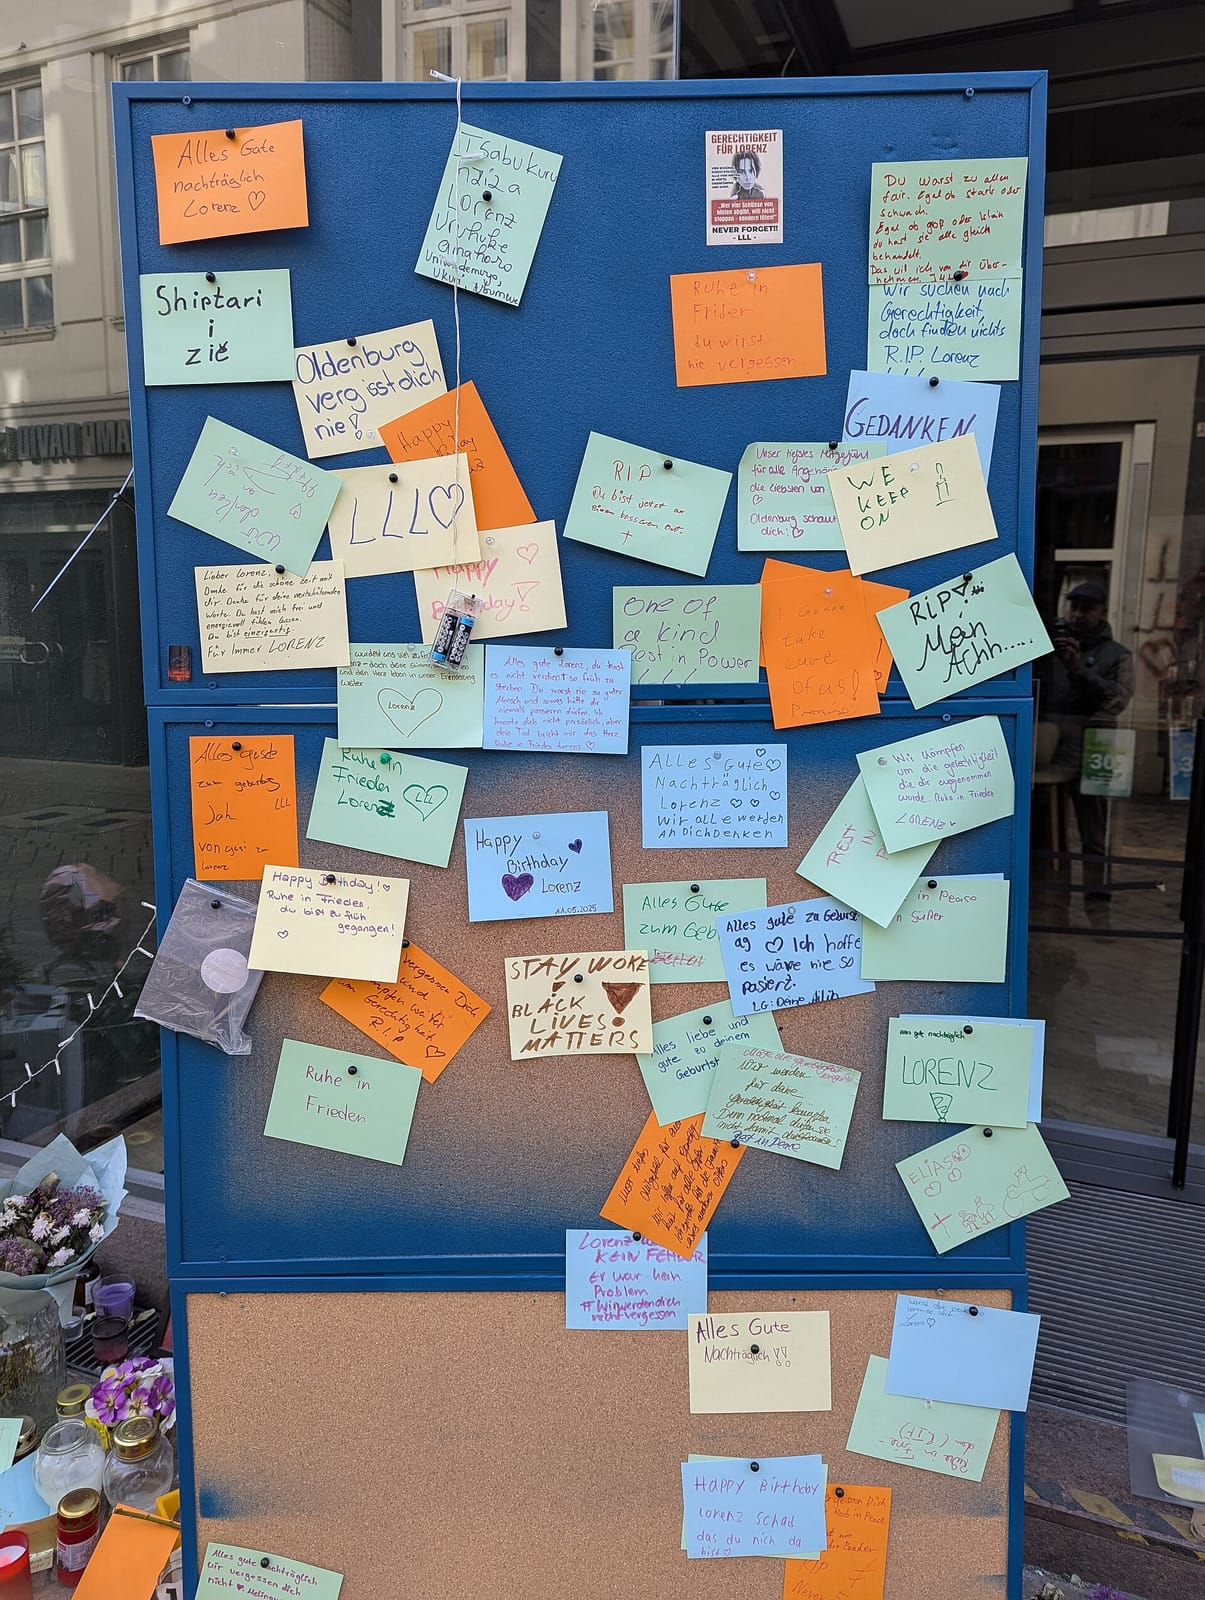 Alles Gute
nachträglich
Lorenz ♡
Isabukuru
nziza
Lorenz
Uruhuke
amahoro
GERECHTIGKEIT
FÜR LORENZ
„Wer vier Schüsse von
hinten abgibt, will nicht
stoppen - sondern töten!"
NEVER FORGET!!
- LLL -
Du warst zu allen
fair. Egal ob stark oder
schwach.
Egal ob groß oder klein
du hast sie alle gleich
behandelt.
Das will ich von dir über-
nehmen.
Wir suchen nach
Gerechtigkeit,
doch finden nichts
R.I.P. Lorenz
Shiptari
i
zië
Ruhe in
Frider
du wirst
nie vergessen
Oldenburg
vergisst dich
nie!
Happy
GEDANKEN
WE
KEEP
ON
Unser tiefstes Mitgefühl
für alle
die liebsten von
♡
Oldenburg schaut
dich! ♡
RIP
Du bist jetzt an
einem besseren Ort.
LLL♡
Wir
denken
an
dich
Happy
Birthday!
Lieber Lorenz,
Danke für die schöne Zeit mit
dir. Danke für deine wertschätzenden
Worte. Du hast mich frei und
energievoll fühlen lassen.
Du bist einzigartig
Für Immer LORENZ
one of
a kind
Rest in Power
I Gonna
take
care
of us!
Promise
RIP!
Mein
Achh....
wurdest uns viel zu
doch deine
und dein Herz leben in unser Erinnerung
weiter
Lorenz
Alles gute Lorenz, du hast
es nicht verdient so früh zu
sterben. Du warst ein so guter
Mensch und sowas hätte dir
niemals passieren dürfen. Ich
kannte dich nicht persönlich, aber
dein Tod bricht mir das Herz.
Ruhe in Frieden Lorenz ♡
Alles gute
zum geburtstag
Jah LLL
von
lorenz
Ruhe in
Frieden
Lorenz
LLL
Alles Gute♡
Nachträglich
Lorenz ♡ ♡ ♡
Wir alle werden
An Dich Denken
Wir kämpfen
um die gerechtigkeit
die dir weggenommen
wurde. Ruhe in Frieden
LORENZ
REST
IN
Happy
Birthday
Lorenz
11.05.2025
Happy Birthday! ♡
Ruhe in Frieden,
du bist zu früh
gegangen!
♡
Alles Gute
zum Geb
Alles gute zu Geburst
ag ♡ Ich hoffe
es wäre nie so
pasiert.
LG: Deine
in Peace
Süßer
vergessen Dich
und
kämpfen weiter
um Gerechtigkeit
R.I.P ♡
STAY WOKE
!
BLACK
LIVES
MATTERS
Alles liebe und
gute zu deinem
Geburtst
Wir werden
für deine
Gerechtigkeit kämpfen
Rest in Peace
nachträglich
LORENZ
Ruhe in
Frieden
ELIAS
Lorenz
KEIN FEHLER
Er war kein
Problem
#Wirwerdendich
nichtvergessen
Alles Gute
Nachträglich !!
Lorenz♡
Ruhe in Frie-
den (RIP)
Happy Birthday
Lorenz Schad
das du nich da
bist♡
Dich
Rest in Peace
Bruder
RIP
Never
Alles gute nachträglich
wir vergessen dich
nicht